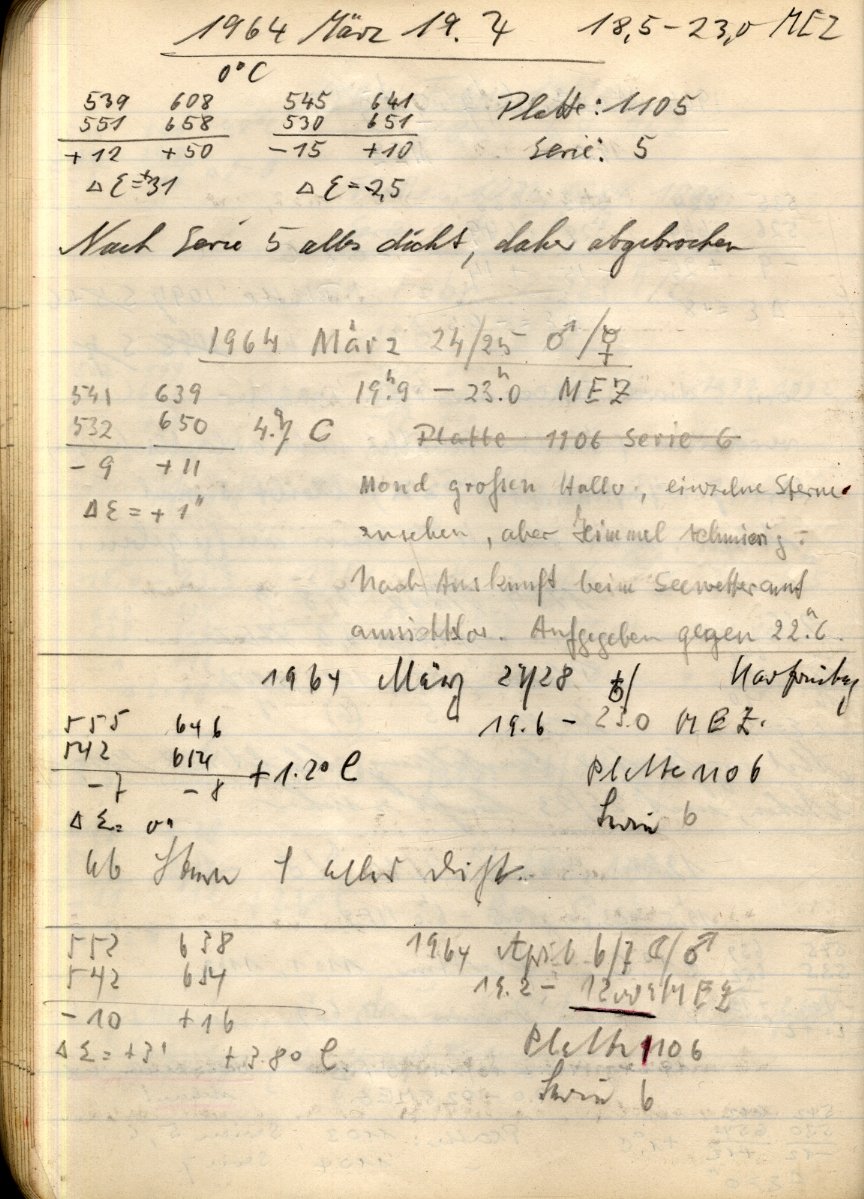 1964 März 19. ♃ 18,5–23,0 MEZ
0°C
539 608 545 641 Platte: 1105
551 658 530 651
+12 +50 -15 +10 Serie: 5
Δε=+31 Δε=-2,5
Nach Serie 5 alles dicht, daher abgebrochen
1964 März 24/25 ♂/☿
541 639 19ʰ.9 – 23ʰ.0 MEZ
532 650 4.°7 C Platte 1106 Serie 6
-9 +11
Δε=+1" Mond großen Hallo, einzelne Sterne
zusehen, aber Himmel schmierig.
Nach Auskunft beim Seewetteramt
aussichtslos. Aufgegeben gegen 22.ʰ6.
1964 März 27/28 Karfreitag
555 646 19.6 – 23.0 MEZ.
542 654 +1.2° C Platte 1106
-7 -8
Δε= 0" Serie 6
ab Stern 1 alles dicht.
552 638 1964 April 6/7 ☾/♂
542 654 19.2 – MEZ
-10 +16
Δε=+3' +3.8° C Platte 1106
Serie 6